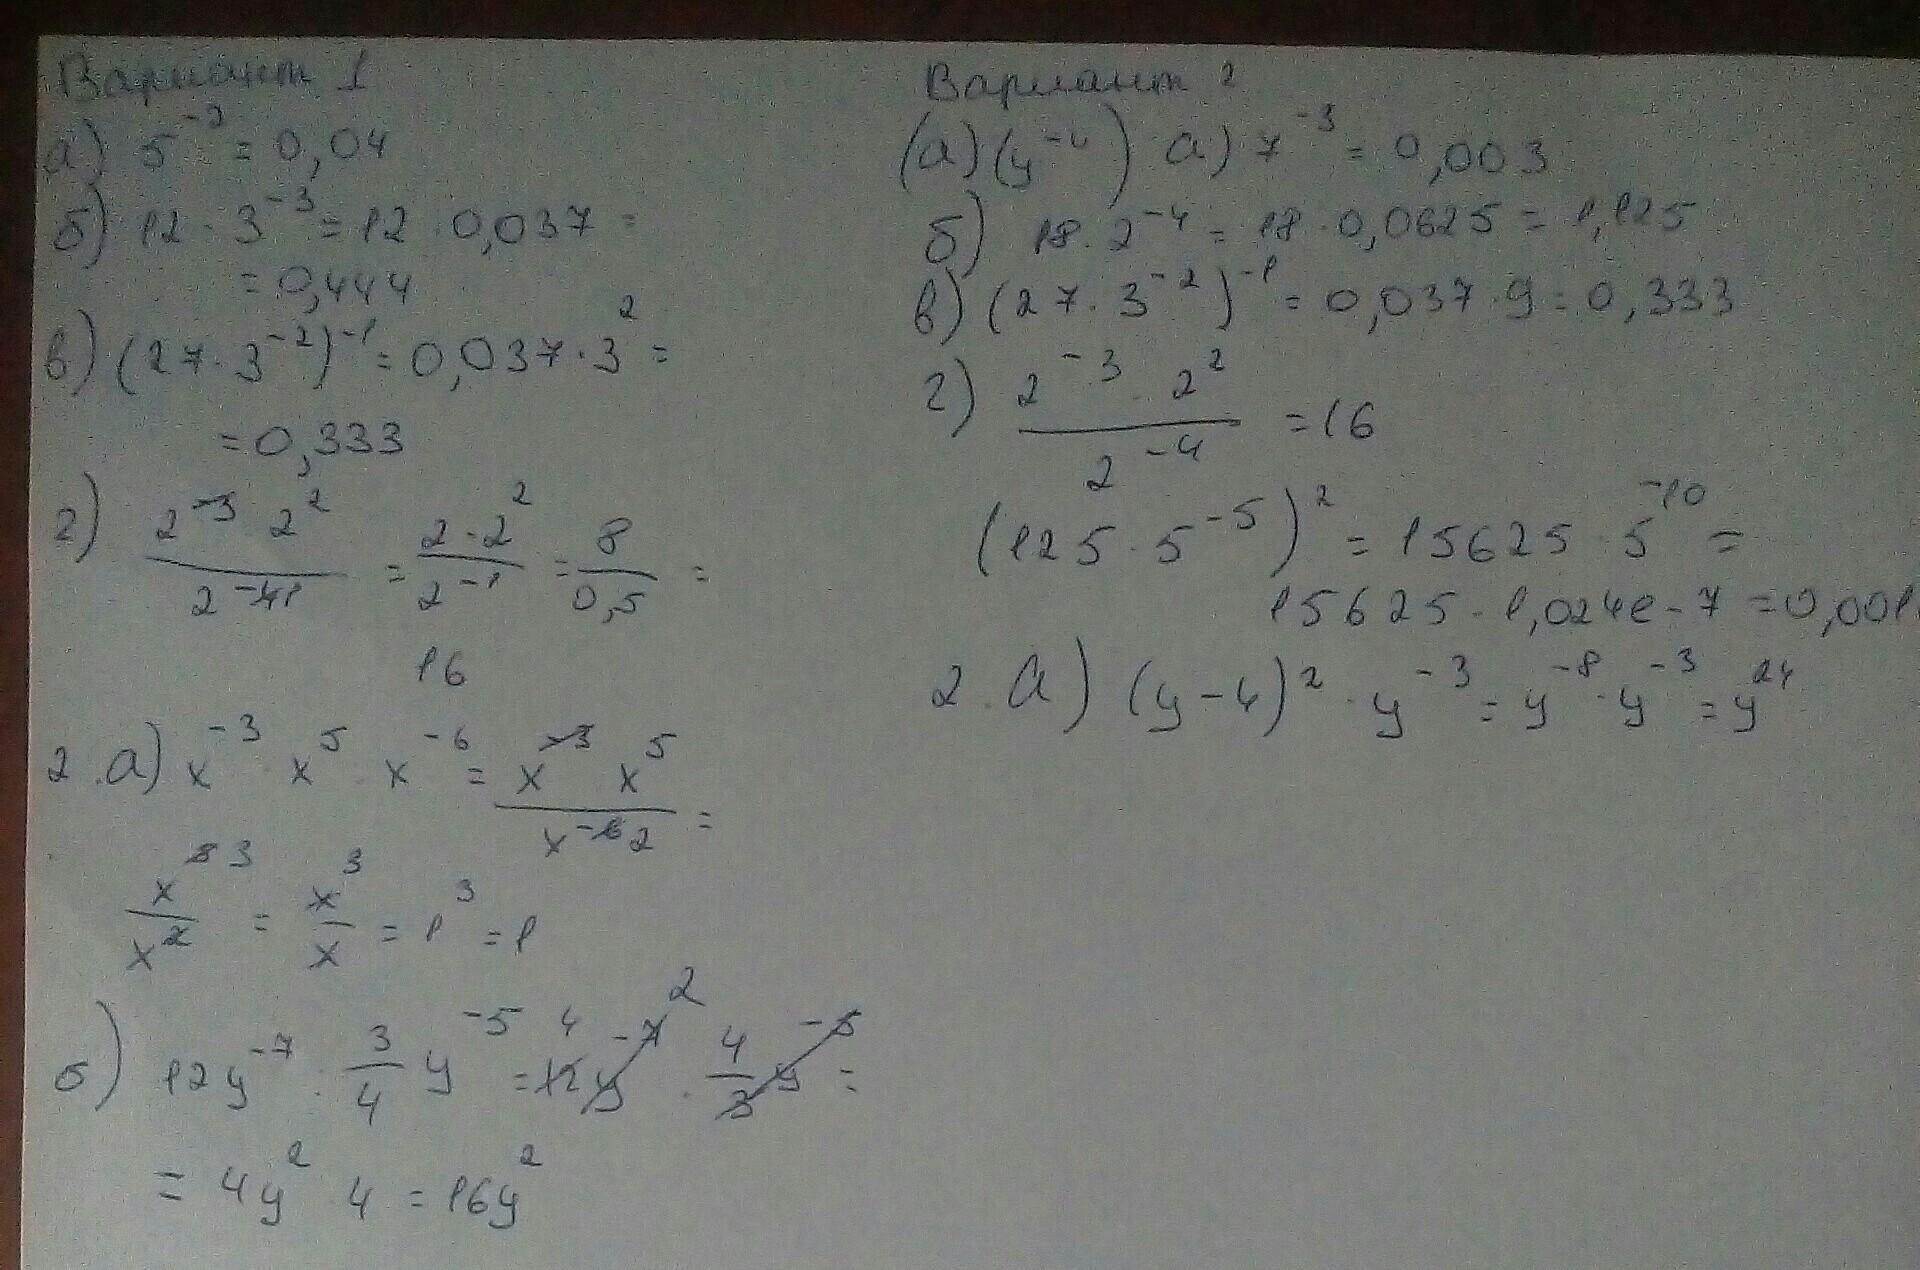 Вариант 1
а) 5^-2 = 0,04
б) 12 · 3^-3 = 12 · 0,037 =
= 0,444
в) (27 · 3^-2)^-1 = 0,037 · 3^2 =
= 0,333
г) (2^-3 2^2)/(2^-4 1) = (2 · 2^2)/(2^-1) = 8/0,5 =
16
2. а) x^-3 · x^5 · x^-6 = (x^-3 x^5)/(x^-6 2) =
x^8 3/x^2 = x^3/x = 1^3 = 1
б) 12y^-7 : 3/4 y^-5 = 12 4 y^-7 2 · 4/3 y^-5 =
= 4y^2 · 4 = 16y^2
Вариант 2
(а) (y^-4) а) 7^-3 = 0,003
б) 18 · 2^-4 = 18 · 0,0625 = 1,125
в) (27 · 3^-2)^-1 = 0,037 · 9 = 0,333
г) (2^-3 · 2^2)/(2^-4) = 16
(125 · 5^-5)^2 = 15625 · 5^-10 =
15625 · 1,024e-7 = 0,001
2. а) (y-4)^2 · y^-3 = y^-8 · y^-3 = y^24